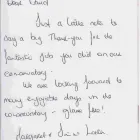 Just a little note to
say a big Thank-you for the
fantastic job you did on our
conservatory.
We are looking forward to
many enjoyable days in the
conservatory - glare free!
Margaret &